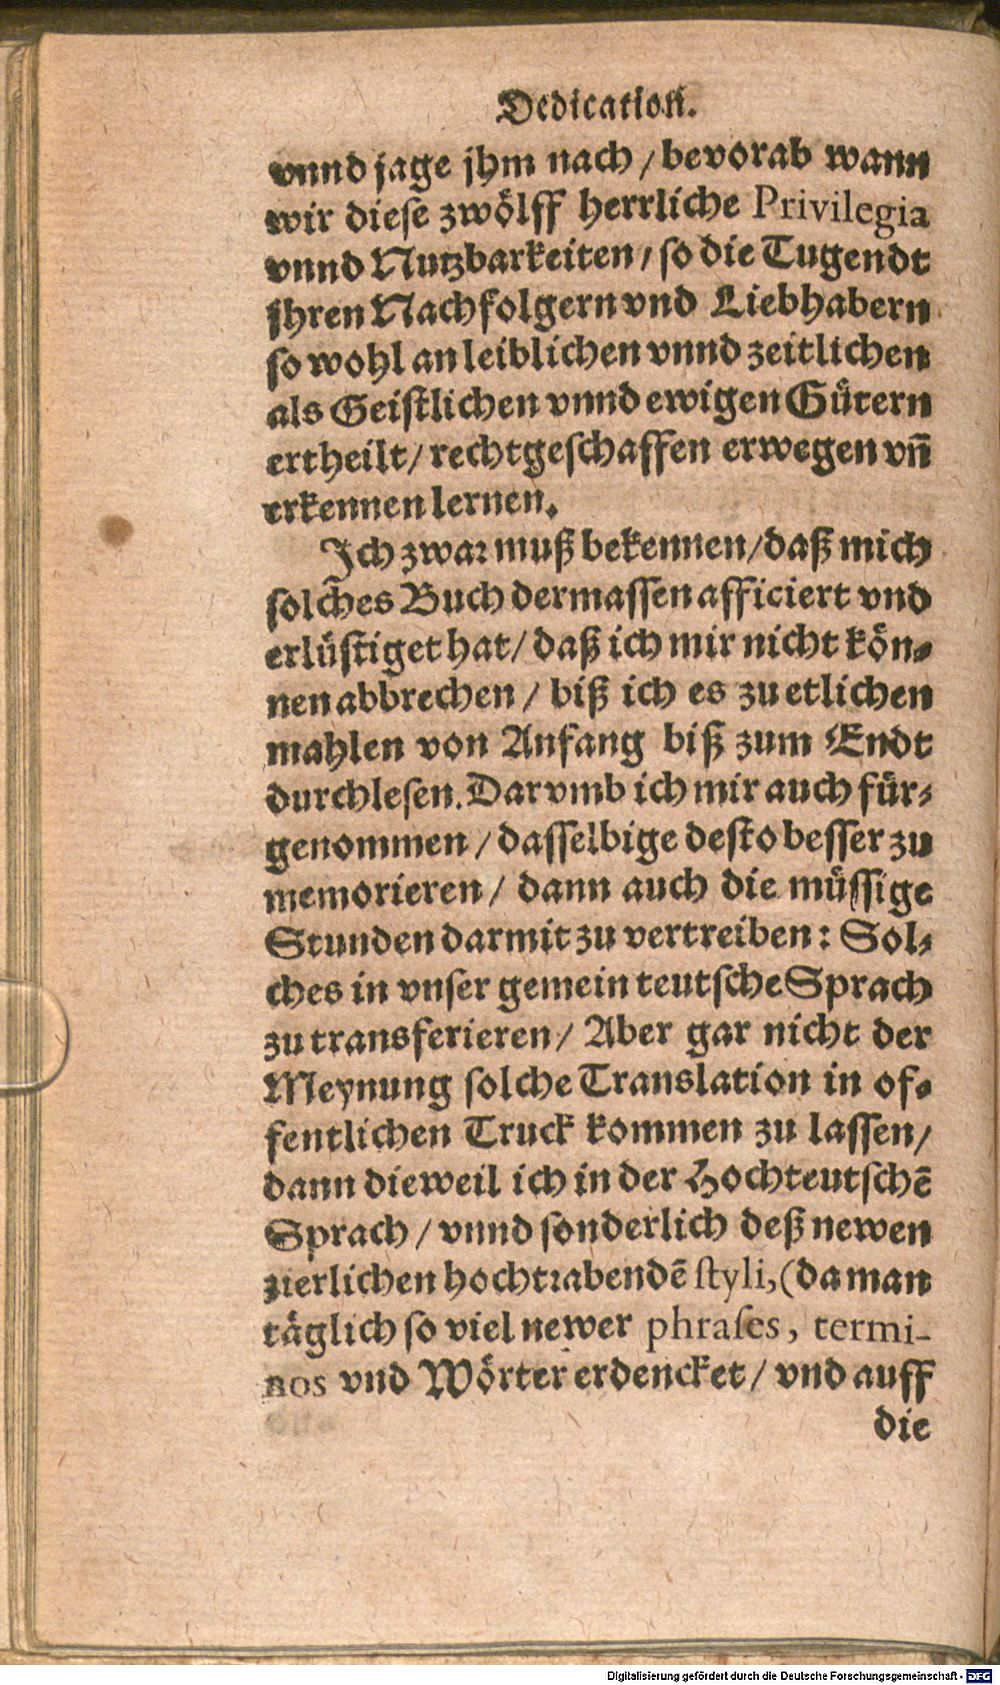 Dedication.
vnnd jage jhm nach / bevorab wann
wir diese zwölff herrliche Privilegia
vnnd Nutzbarkeiten / so die Tugendt
jhren Nachfolgern vnd Liebhabern
so wohl an leiblichen vnnd zeitlichen
als Geistlichen vnnd ewigen Gütern
ertheilt / rechtgeschaffen erwegen vñ
erkennen lernen.
Ich zwar muß bekennen / daß mich
solches Buch dermassen afficiert vnd
erlüstiget hat / daß ich mir nicht kön-
nen abbrechen / biß ich es zu etlichen
mahlen von Anfang biß zum Endt
durchlesen. Darvmb ich mir auch für-
genommen / dasselbige desto besser zu
memorieren / dann auch die müssige
Stunden darmit zu vertreiben: Sol-
ches in vnser gemein teutsche Sprach
zu transferieren / Aber gar nicht der
Meynung solche Translation in of-
fentlichen Truck kommen zu lassen /
dann dieweil ich in der Hochteutschẽ
Sprach / vnnd sonderlich deß newen
zierlichen hochtrabendẽ styli, (da man
täglich so viel newer phrases, termi-
nos vnd Wörter erdencket / vnd auff
die
Digitalisierung gefördert durch die Deutsche Forschungsgemeinschaft - DFG